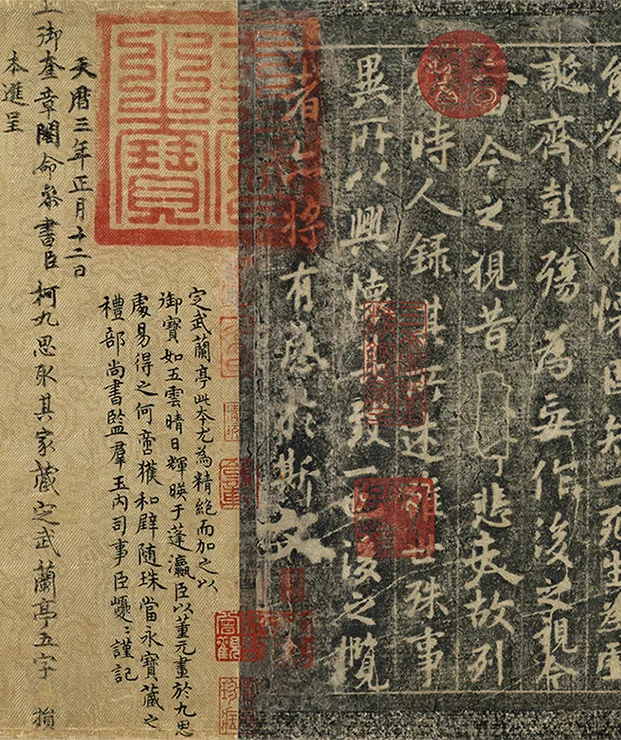 能喻之於懷固知一死生為虛
誕齊彭殤為妄作後之視今
由今之視昔悲夫故列
時人錄其所述雖世殊事
異所以興懷其致一也後之攬
者亦將有感於斯文
定武蘭亭此本尤為精絕而加之以
御寶如五雲晴日輝暎于蓬瀛臣以董元畫於九思
處易得之何啻獲和璧隨珠當永寶藏之
禮部尚書監羣玉內司事臣巙〻謹記
天曆三年正月十二日
上御奎章閣命參書臣柯九思取其家藏定武蘭亭五字損
本進呈